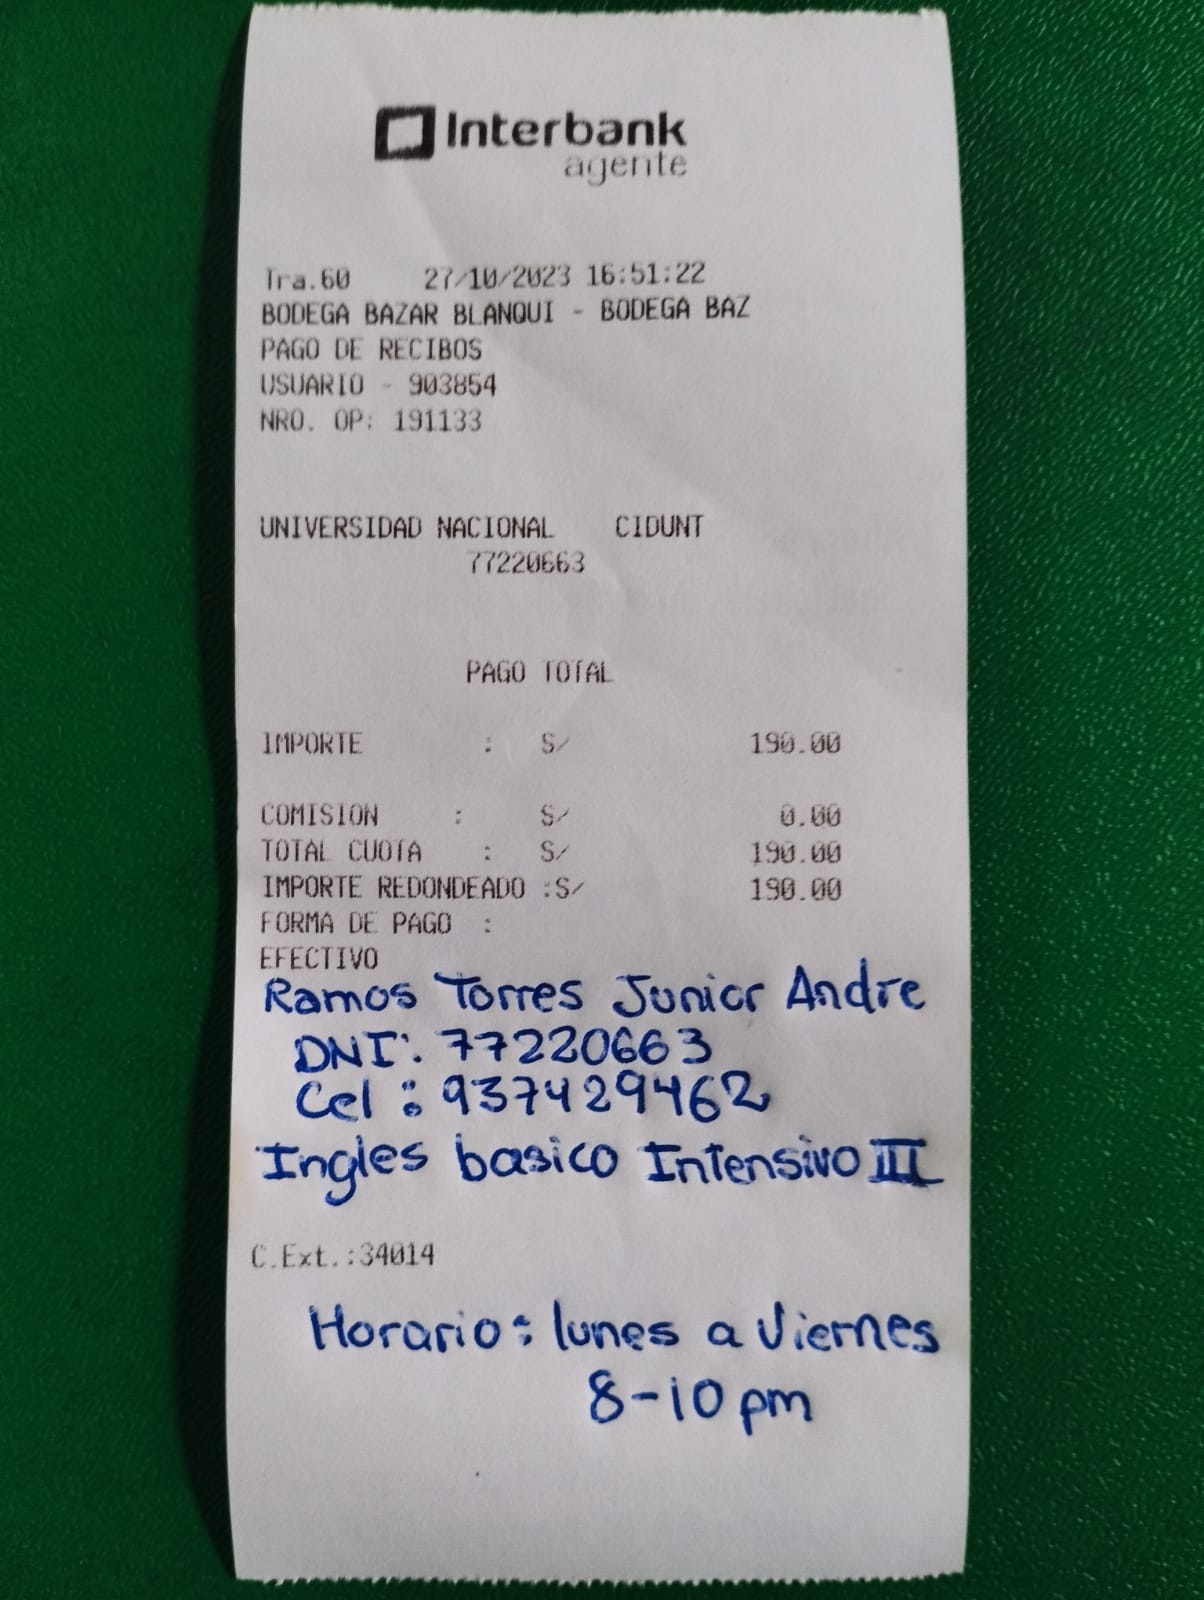 Interbank
agente
Tra.60 27/10/2023 16:51:22
BODEGA BAZAR BLANQUI - BODEGA BAZ
PAGO DE RECIBOS
USUARIO - 903854
NRO. OP: 191133
UNIVERSIDAD NACIONAL CIDUNT
77220663
PAGO TOTAL
IMPORTE : S/ 190.00
COMISION : S/ 0.00
TOTAL CUOTA : S/ 190.00
IMPORTE REDONDEADO :S/ 190.00
FORMA DE PAGO :
EFECTIVO
Ramos Torres Junior Andre
DNI: 77220663
Cel : 937429462
Ingles basico Intensivo III
C.Ext.:34014
Horario: lunes a Viernes
8-10 pm